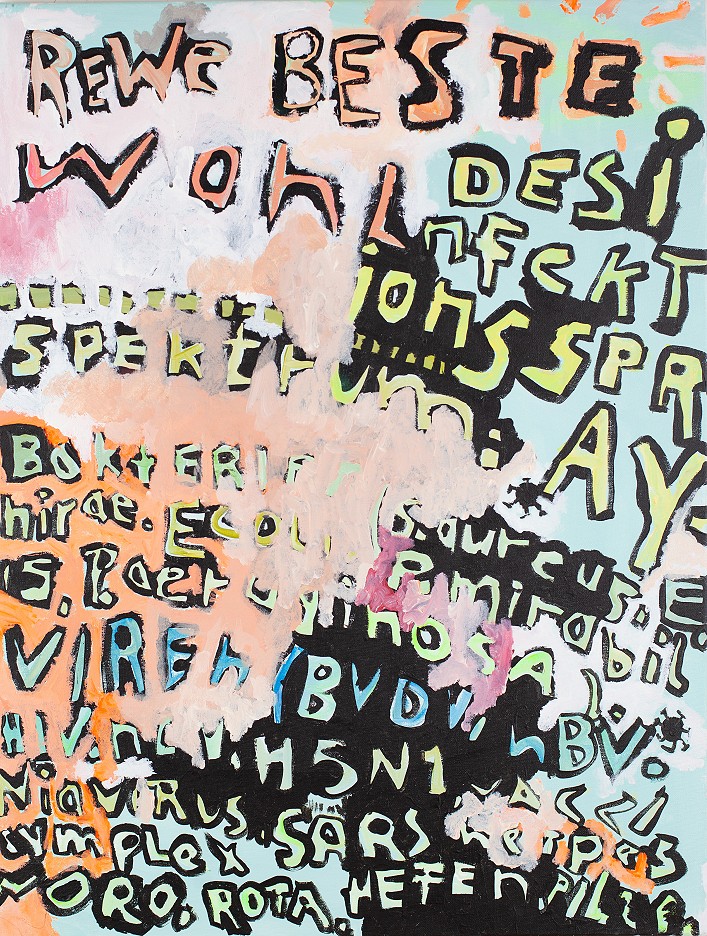 REWE BESTE
WOHL DESI
nfekt
ionsspr
AY-
Spektrum:
BAktERIEn (S.aureus. E.
hirae. Ecoli. P.mirabil
is. P.aeruginosa ).
VIREn (BVDV, hBV.
HIV. hcv. H5N1
vacci
niavirus. SARS herpes
symplex
noro. ROTA. HEFEn, PILZE.